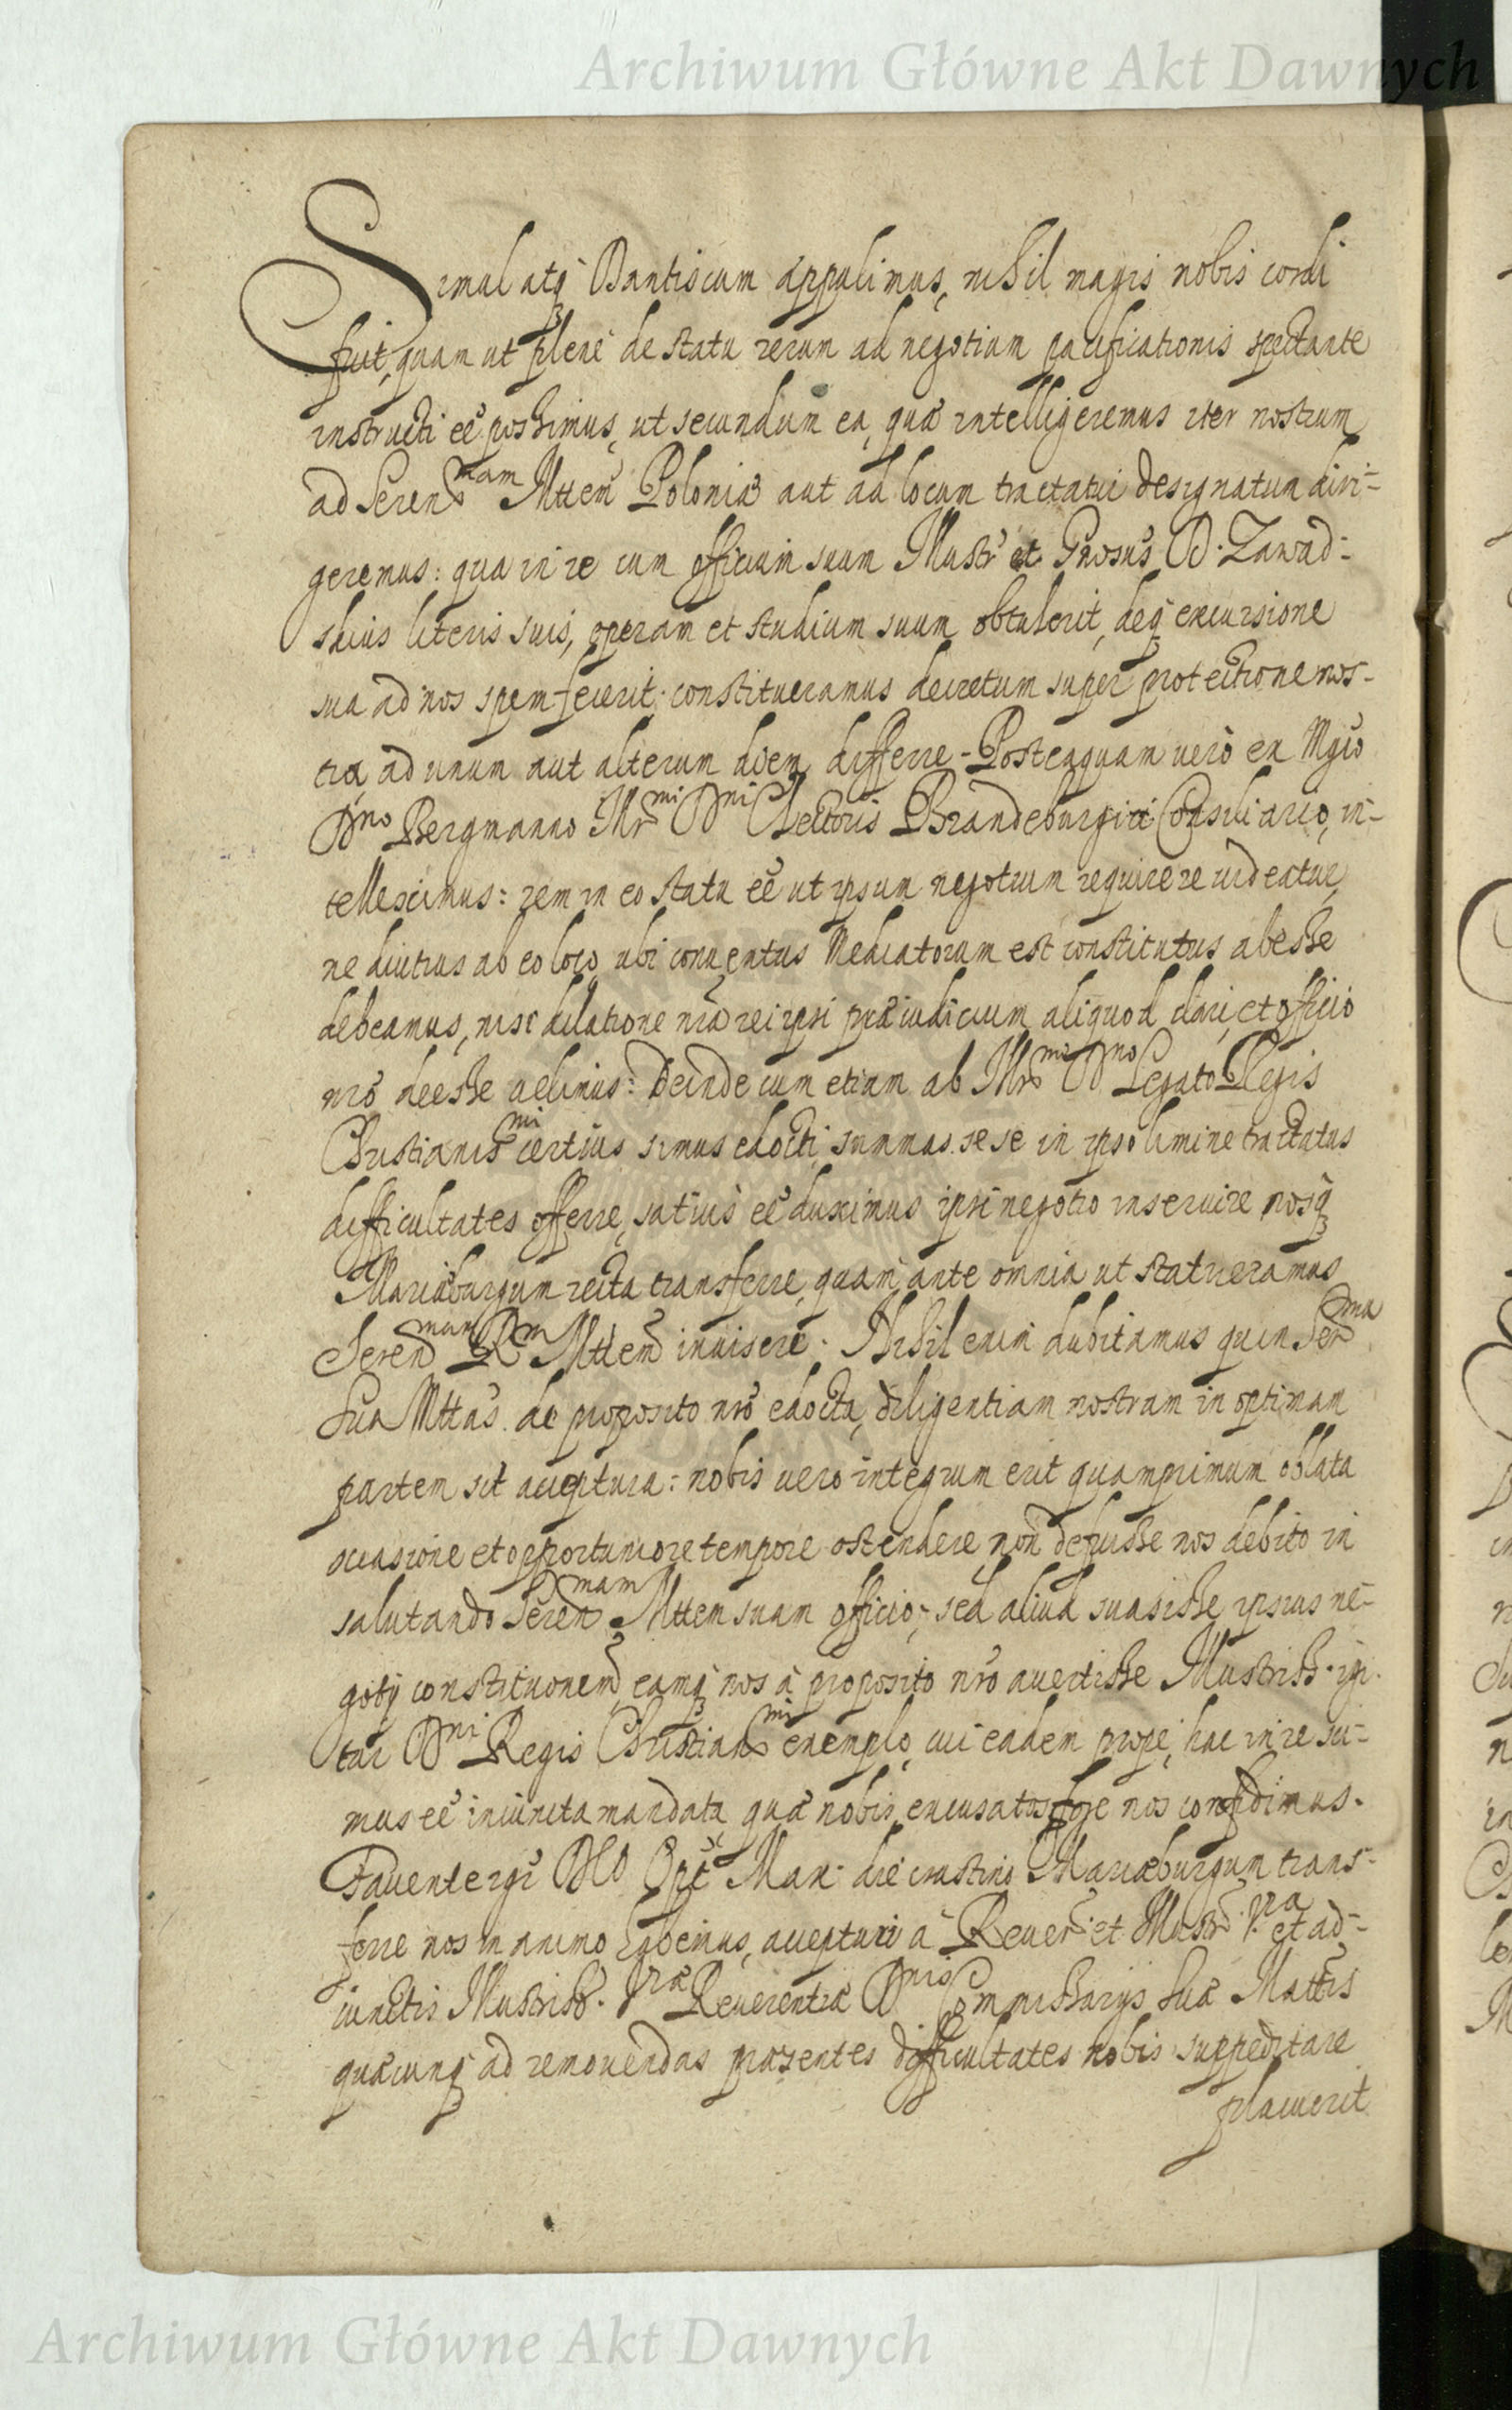 Archiwum Główne Akt Dawnych
Simul atq Dantiscum appulimus, nihil magis nobis cordi
fuit, quam ut plene de statu rerum ad negotium pacificationis spectante
instructi eē possimus, ut secundum ea, quæ intelligeremus iter nostrum
ad Seren mam Mttem Poloniæ aut ad locum tractatui designatum diri-
geremus: qua in re cum officium suum Illustr et Gnosus D. Zawad-
skius literis suis, operam et studium suum obtulerit, deq excursione
sua ad nos spem fecerit: constitueramus decretum super protectione nos-
tra ad unum aut alterum diem differre. Posteaquam verò ex Mgco
Dno Bergmanno Illr mi Dni Electoris Brandeburgici Consiliario, in-
telleximus: rem in eo statu eē ut ipsum negotium requirere videatur,
ne diutius ab eo loco, ubi conventus Mediatorum est constitutus abesse
debeamus, nisi dilatione nrā rei ipsi præiudicium aliquod dari, et officio
nrō deesse velimus: Deinde cum etiam ab Illr mo Dno Legato Regis
Christianis mi certius simus edocti, summas sese in ipso limine tractatus
difficultates offerre, satius eē duximus ipsi negotio inservire, nosq
Mariæburgum recta transferre, quam ante omnia ut statueramus
Seren mam Rm Mttem invisere. Nihil enim dubitamus quin Ser ma
Sua Mttas de proposito nrō edocta, diligentiam nostram in optimam
partem sit acceptura: nobis vero integrum erit quamprimum oblata
occasione et opportuniore tempore ostendere, non defuisse nos debito in
salutando Seren mam Mttem suam officio, sed aliud suasisse ipsius ne-
gotij constitutionem, eamq nos à proposito nrō avertisse Illustriss. igi-
tur Dni Regis Christian mi exemplo, cui eadem prope hac in re sci-
mus eē iniuncta mandata, quæ nobis, excusatos fore nos confidimus.
Favente igr DEO Opt Max. die crastino Mariæburgum trans-
ferre nos in animo habemus, accepturi à Rever. et Illustr. Vra et ad-
iunctis Illustriss. Vræ Reverentiæ Dnis Commissarijs Suæ Mattis
quæcunq ad removendas præsentes difficultates nobis suppeditare
placuerit
Archiwum Główne Akt Dawnych